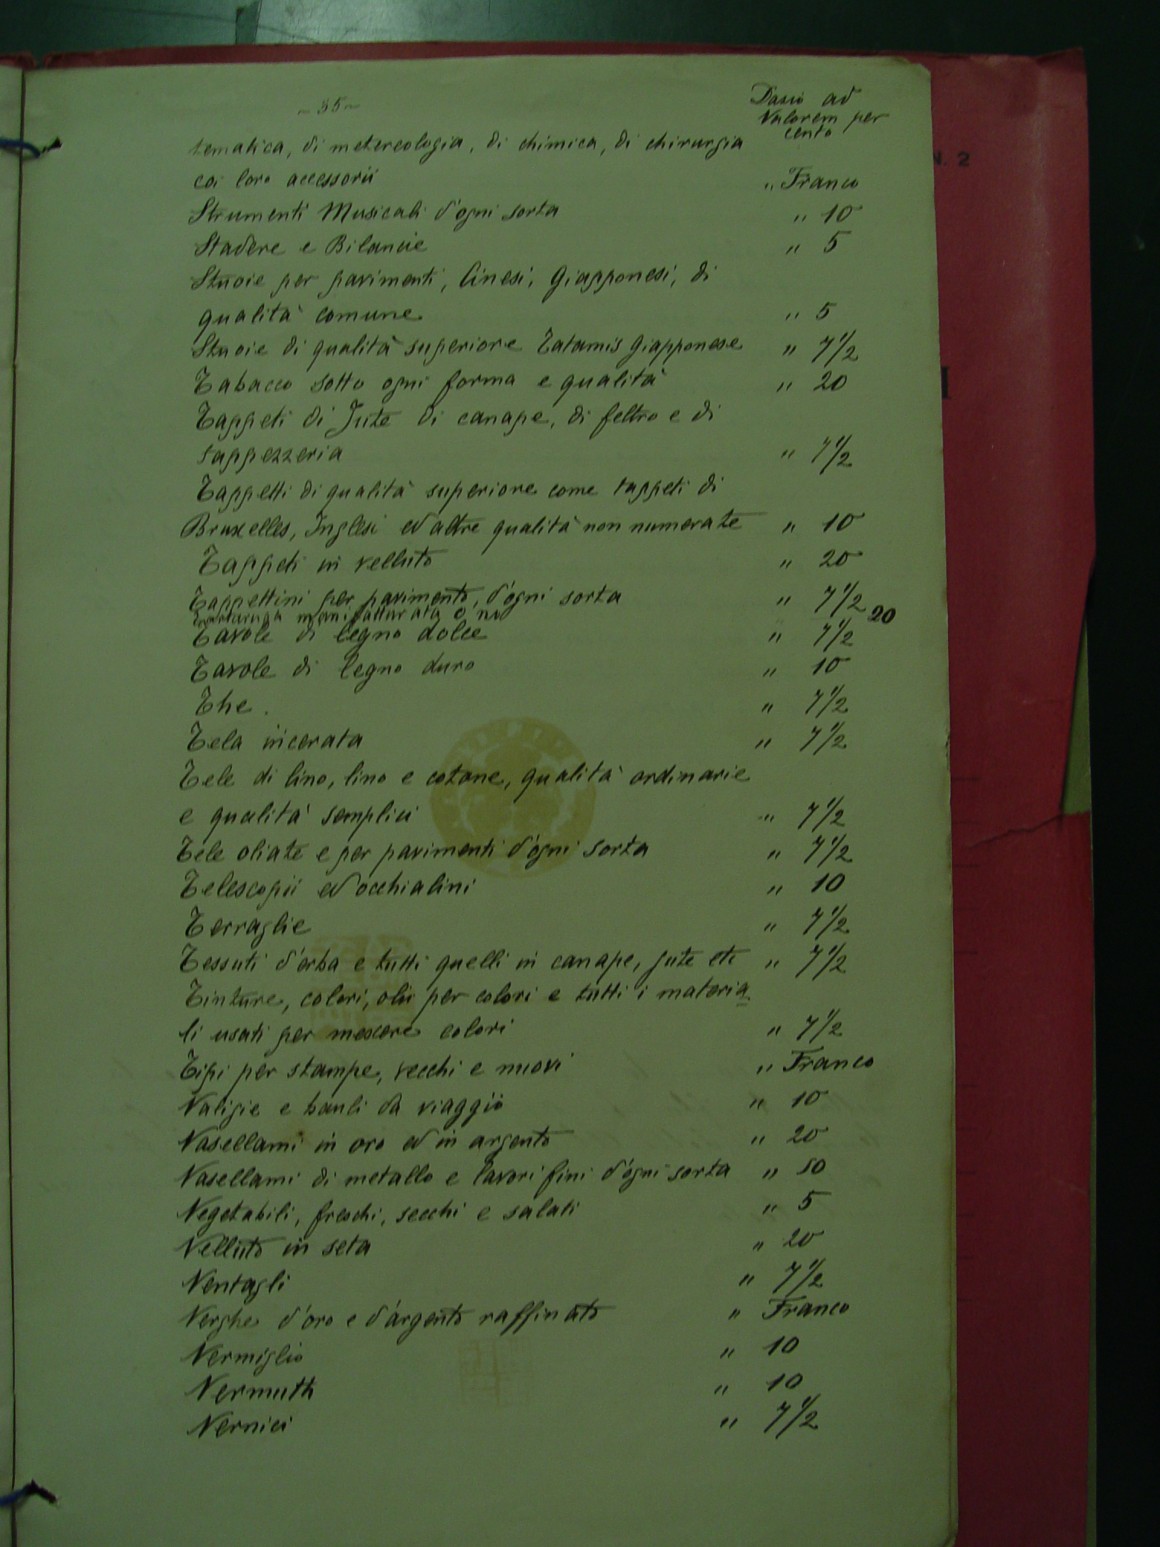 - 35 -
Dazio ad
Valorem per
cento
tematica, di metereologia, di chimica, di chirurgia
coi loro accessorii " Franco
Strumenti Musicali d'ogni sorta " 10
Stadere e Bilancie " 5
Stuoie per pavimenti, Cinesi, Giapponesi, di
qualità comune " 5
Stuoie di qualità superiore Tatamis giapponese " 7 1/2
Tabacco sotto ogni forma e qualità " 20
Tappeti di Jute di canape, di feltro e di
tappezzeria " 7 1/2
Tappetti di qualità superiore come tappeti di
Bruxelles, Inglesi ed altre qualità non numerate " 10
Tappeti in velluto " 20
Tappettini per pavimento, d'ogni sorta " 7 1/2
Tartaruga manifatturata o no 20
Tavole di legno dolce " 7 1/2
Tavole di legno duro " 10
The " 7 1/2
Tela incerata " 7 1/2
Tele di lino, lino e cotone, qualità ordinarie
e qualità semplici " 7 1/2
Tele oliate e per pavimenti d'ogni sorta " 7 1/2
Telescopii ed occhialini " 10
Terraglie " 7 1/2
Tessuti d'erba e tutti quelli in canape, jute etc " 7 1/2
Tinture, colori, olii per colori e tutti i materia
li usati per mescere colori " 7 1/2
Tipi per stampe, vecchi e nuovi " Franco
Valigie e bauli da viaggio " 10
Vasellami in oro ed in argento " 20
Vasellami di metallo e lavori fini d'ogni sorta " 10
Vegetabili, freschi, secchi e salati " 5
Velluto in seta " 20
Ventagli " 7 1/2
Verghe d'oro e d'argento raffinato " Franco
Vermiglio " 10
Vermuth " 10
Vernici " 7 1/2
N. 2